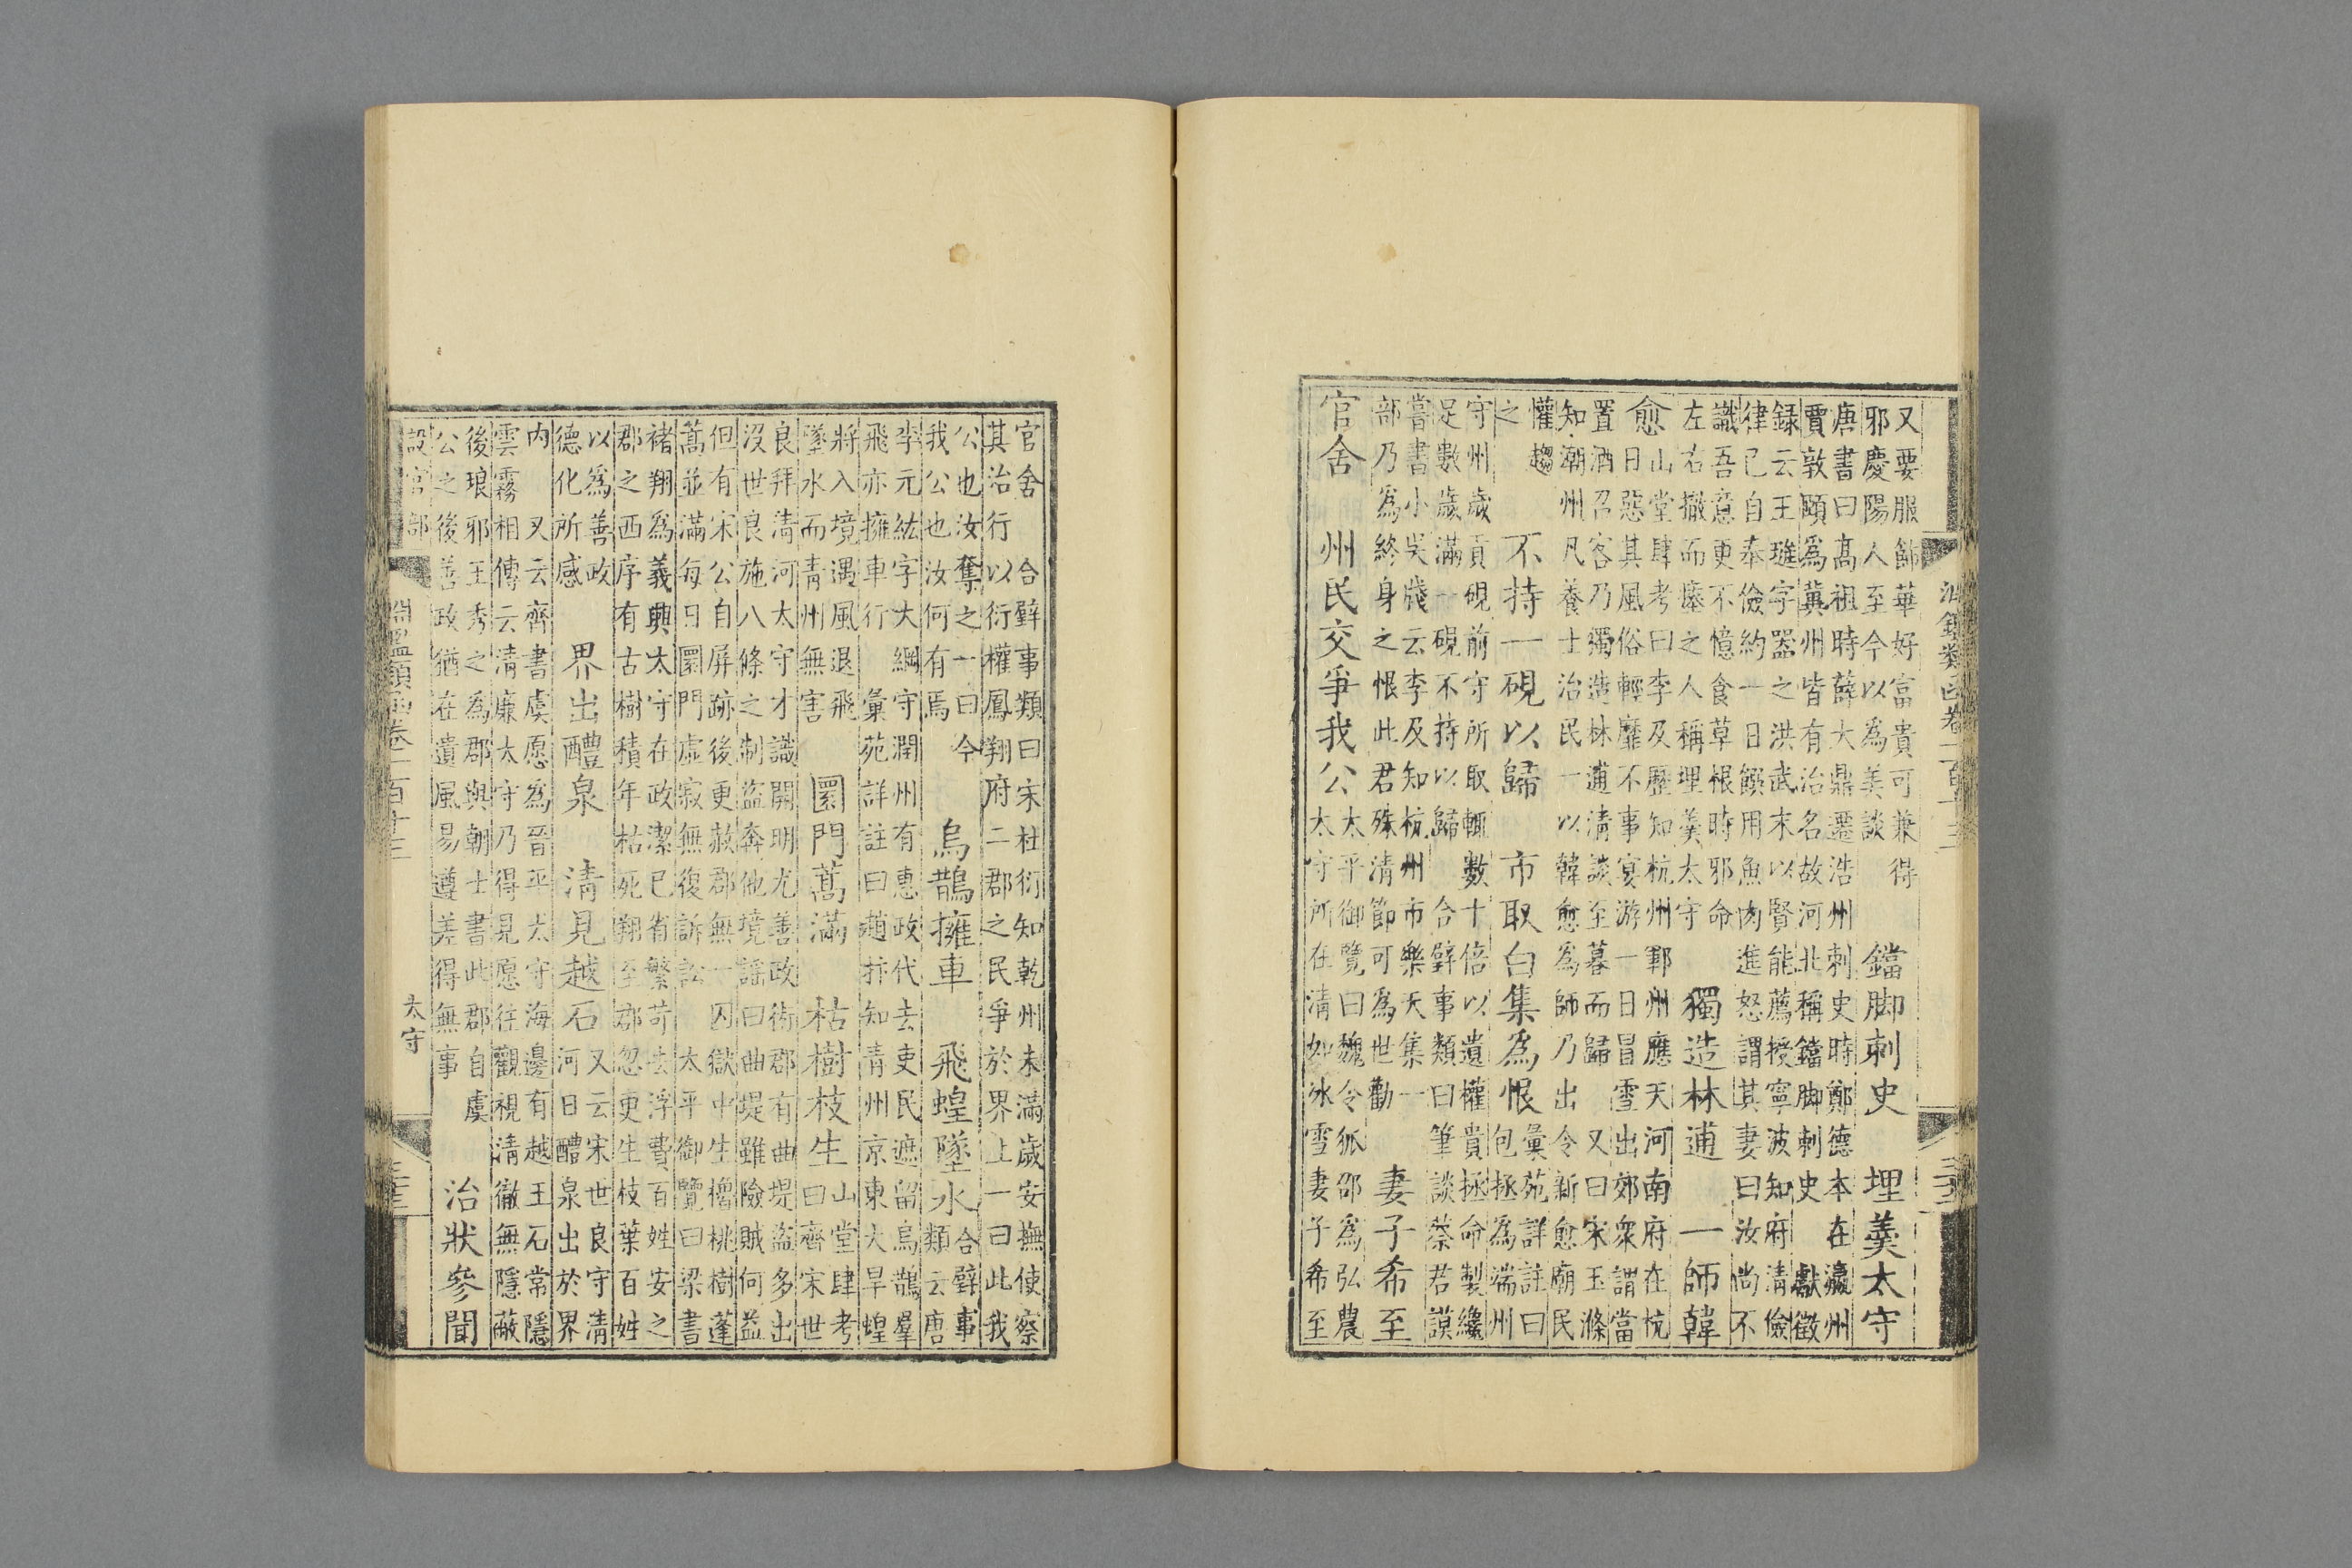 淵鑑類函卷一百十三
又要服飾華好富貴可兼得
邪慶陽人至今以為美談
鐺脚刺史　埋羹太守
唐書曰高祖時薛大鼎遷浩州刺史時鄭德本在瀛州
賈敦頤為冀州皆有治名故河北稱鐺脚刺史　獻徵
録云王璡字器之洪武末以賢能薦授寧波知府清儉
律已自奉儉約一日饌用魚肉進怒謂其妻曰汝尚不
識吾意更不憶食草根時邪命
左右撤而瘞之人稱埋羹太守
獨造林逋　一師韓
愈
山堂肆考曰李及歷知杭州鄆州應天河南府在杭
日惡其風俗輕靡不事宴游一日冒雪出郊衆謂當
置酒召客乃獨造林逋清談至暮而歸　又曰宋玉滌
知潮州凡養士治民一以韓愈為師乃出令新愈廟民
懽趨
之
不持一硯以歸　市取白集為恨
彙苑詳註曰
包拯為端州
守州歲貢硯前守所取輒數十倍以遺權貴拯命製纔
足數歲滿一硯不持以歸　合璧事類曰筆談蔡君謨
嘗書小吳牋云李及知杭州市樂天集一
部乃為終身之恨此君殊清節可為世勸
妻子希至
官舍　州民交爭我公
太平御覽曰魏令狐邵為弘農
太守所在清如冰雪妻子希至
官舍　合璧事類曰宋杜衍知乾州未滿歲安撫使察
其治行以衍權鳳翔府二郡之民爭於界上一曰此我
公也汝奪之一曰今
我公也汝何有焉
烏鵲擁車　飛蝗墜水
合璧事
類云唐
李元紘字大綱守潤州有惠政代去吏民遮留烏鵲羣
飛亦擁車行　彙苑詳註曰趙抃知青州京東大旱蝗
將入境遇風退飛
墜水而青州無害
圜門蒿滿　枯樹枝生
山堂肆考
曰齊宋世
良拜清河太守才識開明尤善政術郡有曲堤盗多出
沒世良施八條之制盗奔他境謡曰曲堤雖險賊何益
但有宋公自屏跡後更赦郡無一囚獄中生櫓桃樹蓬
蒿並滿每日圜門虛寂無復訴訟　太平御覽曰梁書
褚翔為義興太守在政潔已省繁苛去浮費百姓安之
郡之西序有古樹積年枯死翔至郡忽更生枝葉百姓
以為善政
德化所感
界出醴泉　清見越石
又云宋世良守清
河日醴泉出於界
内　又云齊書虞愿為晉平太守海邊有越王石常隱
雲霧相傳云清廉太守乃得見愿往觀視清徹無隱蔽
後琅邪王秀之為郡與朝士書此郡自虞
公之後善政猶在遺風易遵差得無事
治狀參聞
設官部
淵鑑類函卷一百十三
太守